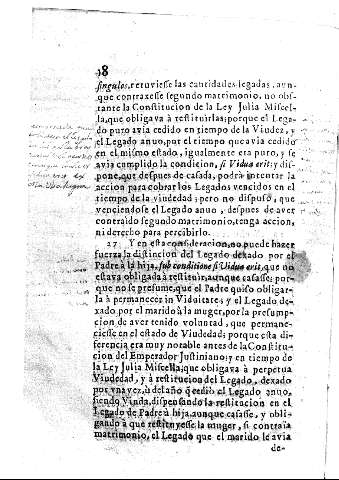 38
singulos, retuviesse las cantidades legadas, aun-
que contraxesse segundo matrimonio, no obs-
tante la Constitucion de la Ley Julia Miscel-
la, que obligava à restituirlas; porque el Lega-
do puro avia cedido en tiempo de la Viudez, y
el Legado anuo, por el tiempo que avia cedido
en el mismo estado, igualmente era puro, y se
avia cumplido la condicion, si Vidua erit; y dis-
pone, que despues de casada, podrà intentar la
accion para cobrar los Legados vencidos en el
tiempo de la viudedad; pero no dispuso, que
venciendose el Legado anuo, despues de aver
contraido segundo matrimonio, tenga accion,
ni derecho para percibirlo.
27 Y en esta consideracion, no puede hazer
fuerza la distincion del Legado dexado por el
Padre à la hija, sub conditione si Vidua erit, que no
estava obligada à restituir, aunque casasse; por-
que no se presume, que el Padre quiso obligar-
la à permanecer in Viduitate; y el Legado de-
xado por el marido à la muger, por la presump-
cion de aver tenido voluntad, que permane-
ciesse en el estado de Viudedad; porque esta di-
ferencia era muy notable antes de la Constitu-
cion del Emperador Justiniano; y en tiempo de
la Ley Julia Miscella, que obligava à perpetua
Viudedad, y à restitucion del Legado, dexado
por una vez, ù del año que cediò el Legado anuo,
siendo Viuda, dispensando la restitucion en el
Legado de Padre à hija, aunque casasse, y obli-
gando à que restituyesse la muger, si contraìa
matrimonio, el Legado que el marido le avia
de-